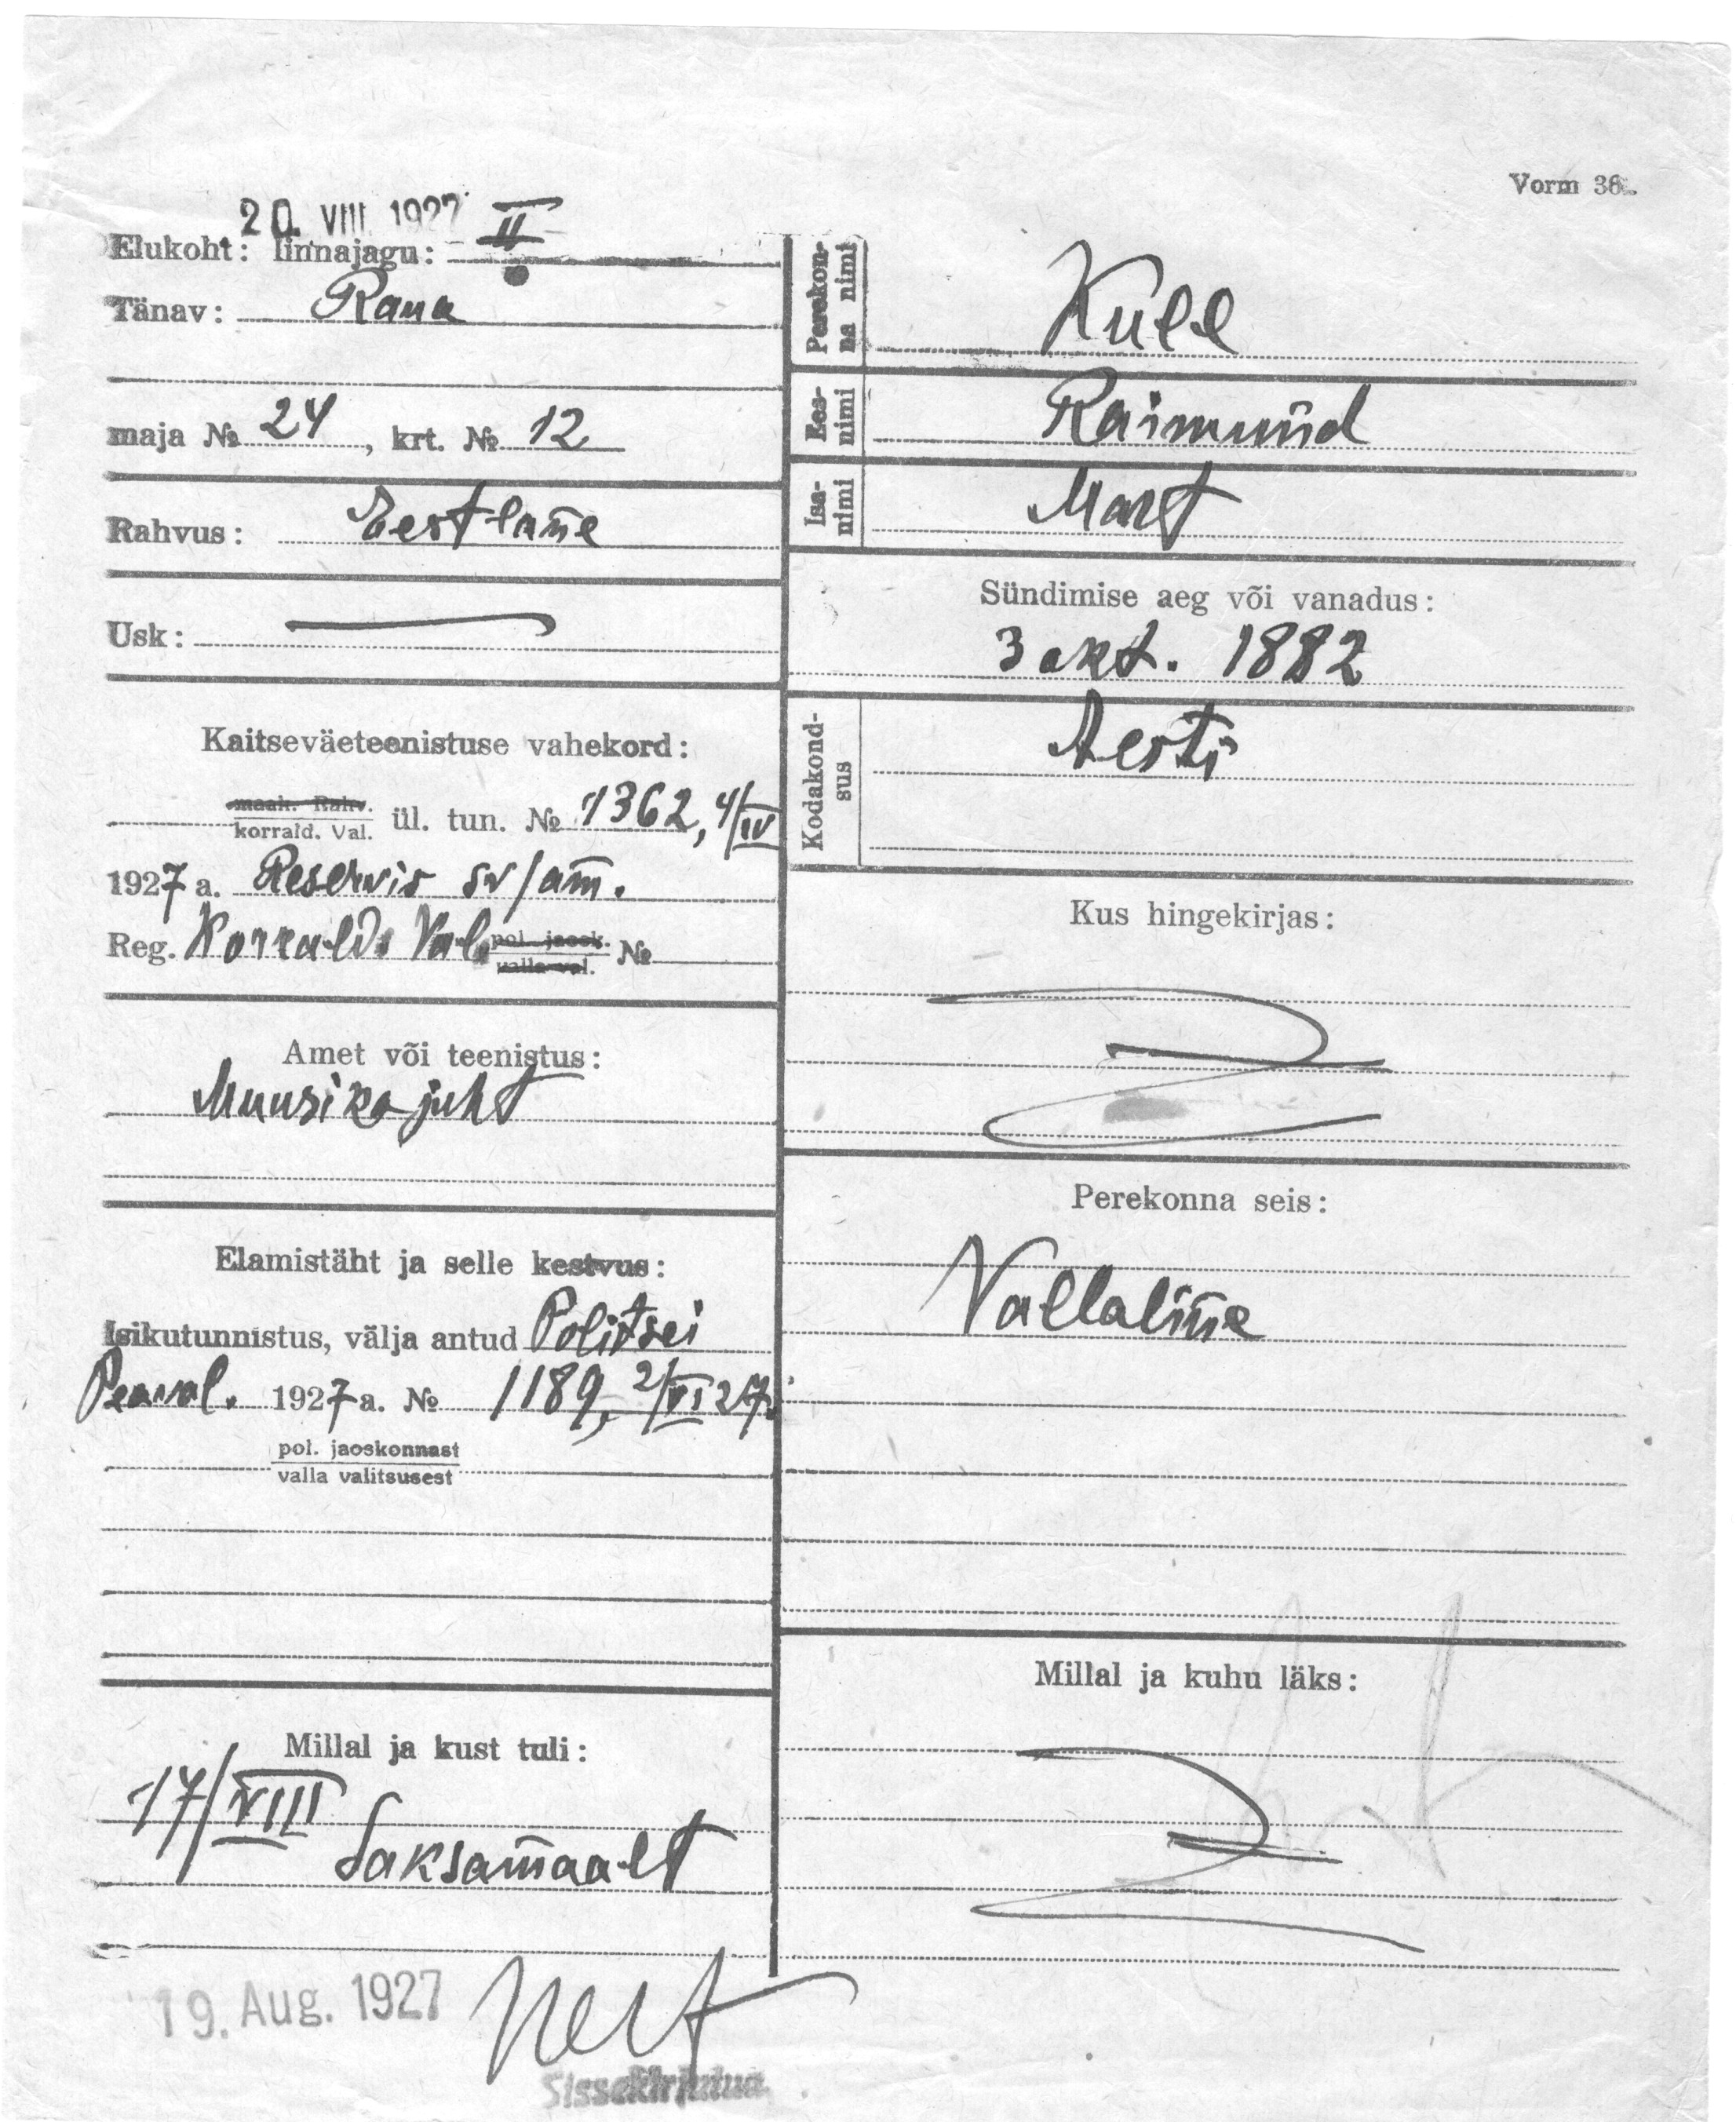 Vorm 36.
20. VIII. 1927
Elukoht: linnajagu: II
Tänav: Raua
maja № 24, krt. № 12
Rahvus: Eestlane
Usk:
Kaitseväeteenistuse vahekord:
maak. Rahv.
korrald. Val. ül. tun. № 1362, 4/IV
1927 a. Reservis sv/am.
Reg. Korralds Val. pol. jaosk. №
valla val.
Amet või teenistus:
Muusika juht
Elamistäht ja selle kestvus:
Isikutunnistus, välja antud Politsei
Peaval. 1927 a. № 1189, 2/VI 27.
pol. jaoskonnast
valla valitsusest
Millal ja kust tuli:
17/VIII
Saksamaalt
19. Aug. 1927
Sissekirjutud
Perekon-
na nimi
Kull
Ees-
nimi
Raimund
Isa-
nimi
Mart
Sündimise aeg või vanadus:
3 okt. 1882
Kodakond-
sus
Aesti
Kus hingekirjas:
Perekonna seis:
Vallaline
Millal ja kuhu läks: